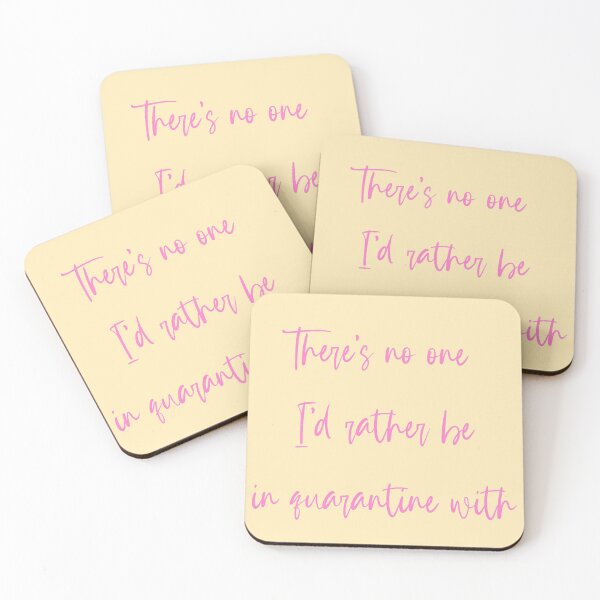 There's no one
I'd be
There's no one
I'd rather be
with
There's no one
I'd rather be
in
There's no one
I'd rather be
in quarantine with